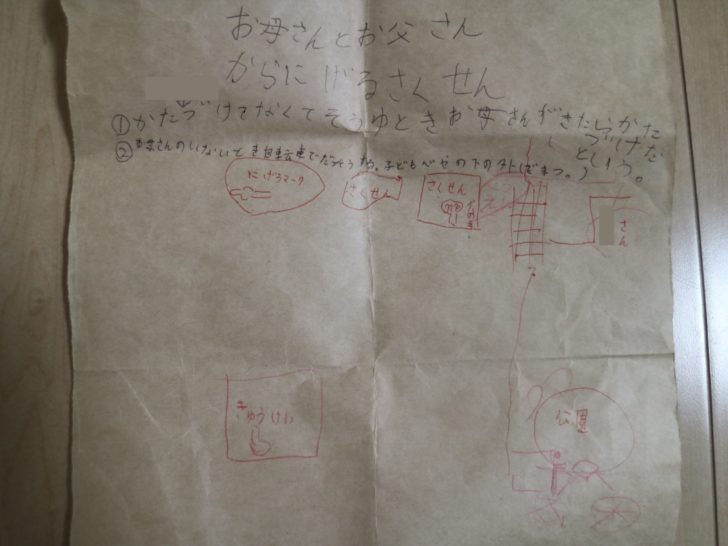 お母さんとお父さん
からにげるさくせん
①かたづけてなくてそうゆときお母さんがきたらかた
づけた
という。
②お母さんのいないとき自転車でだっそうや。子どもべやの下の
にげろマーク
さくせん
さくせん
さん
きゅうけい
公園